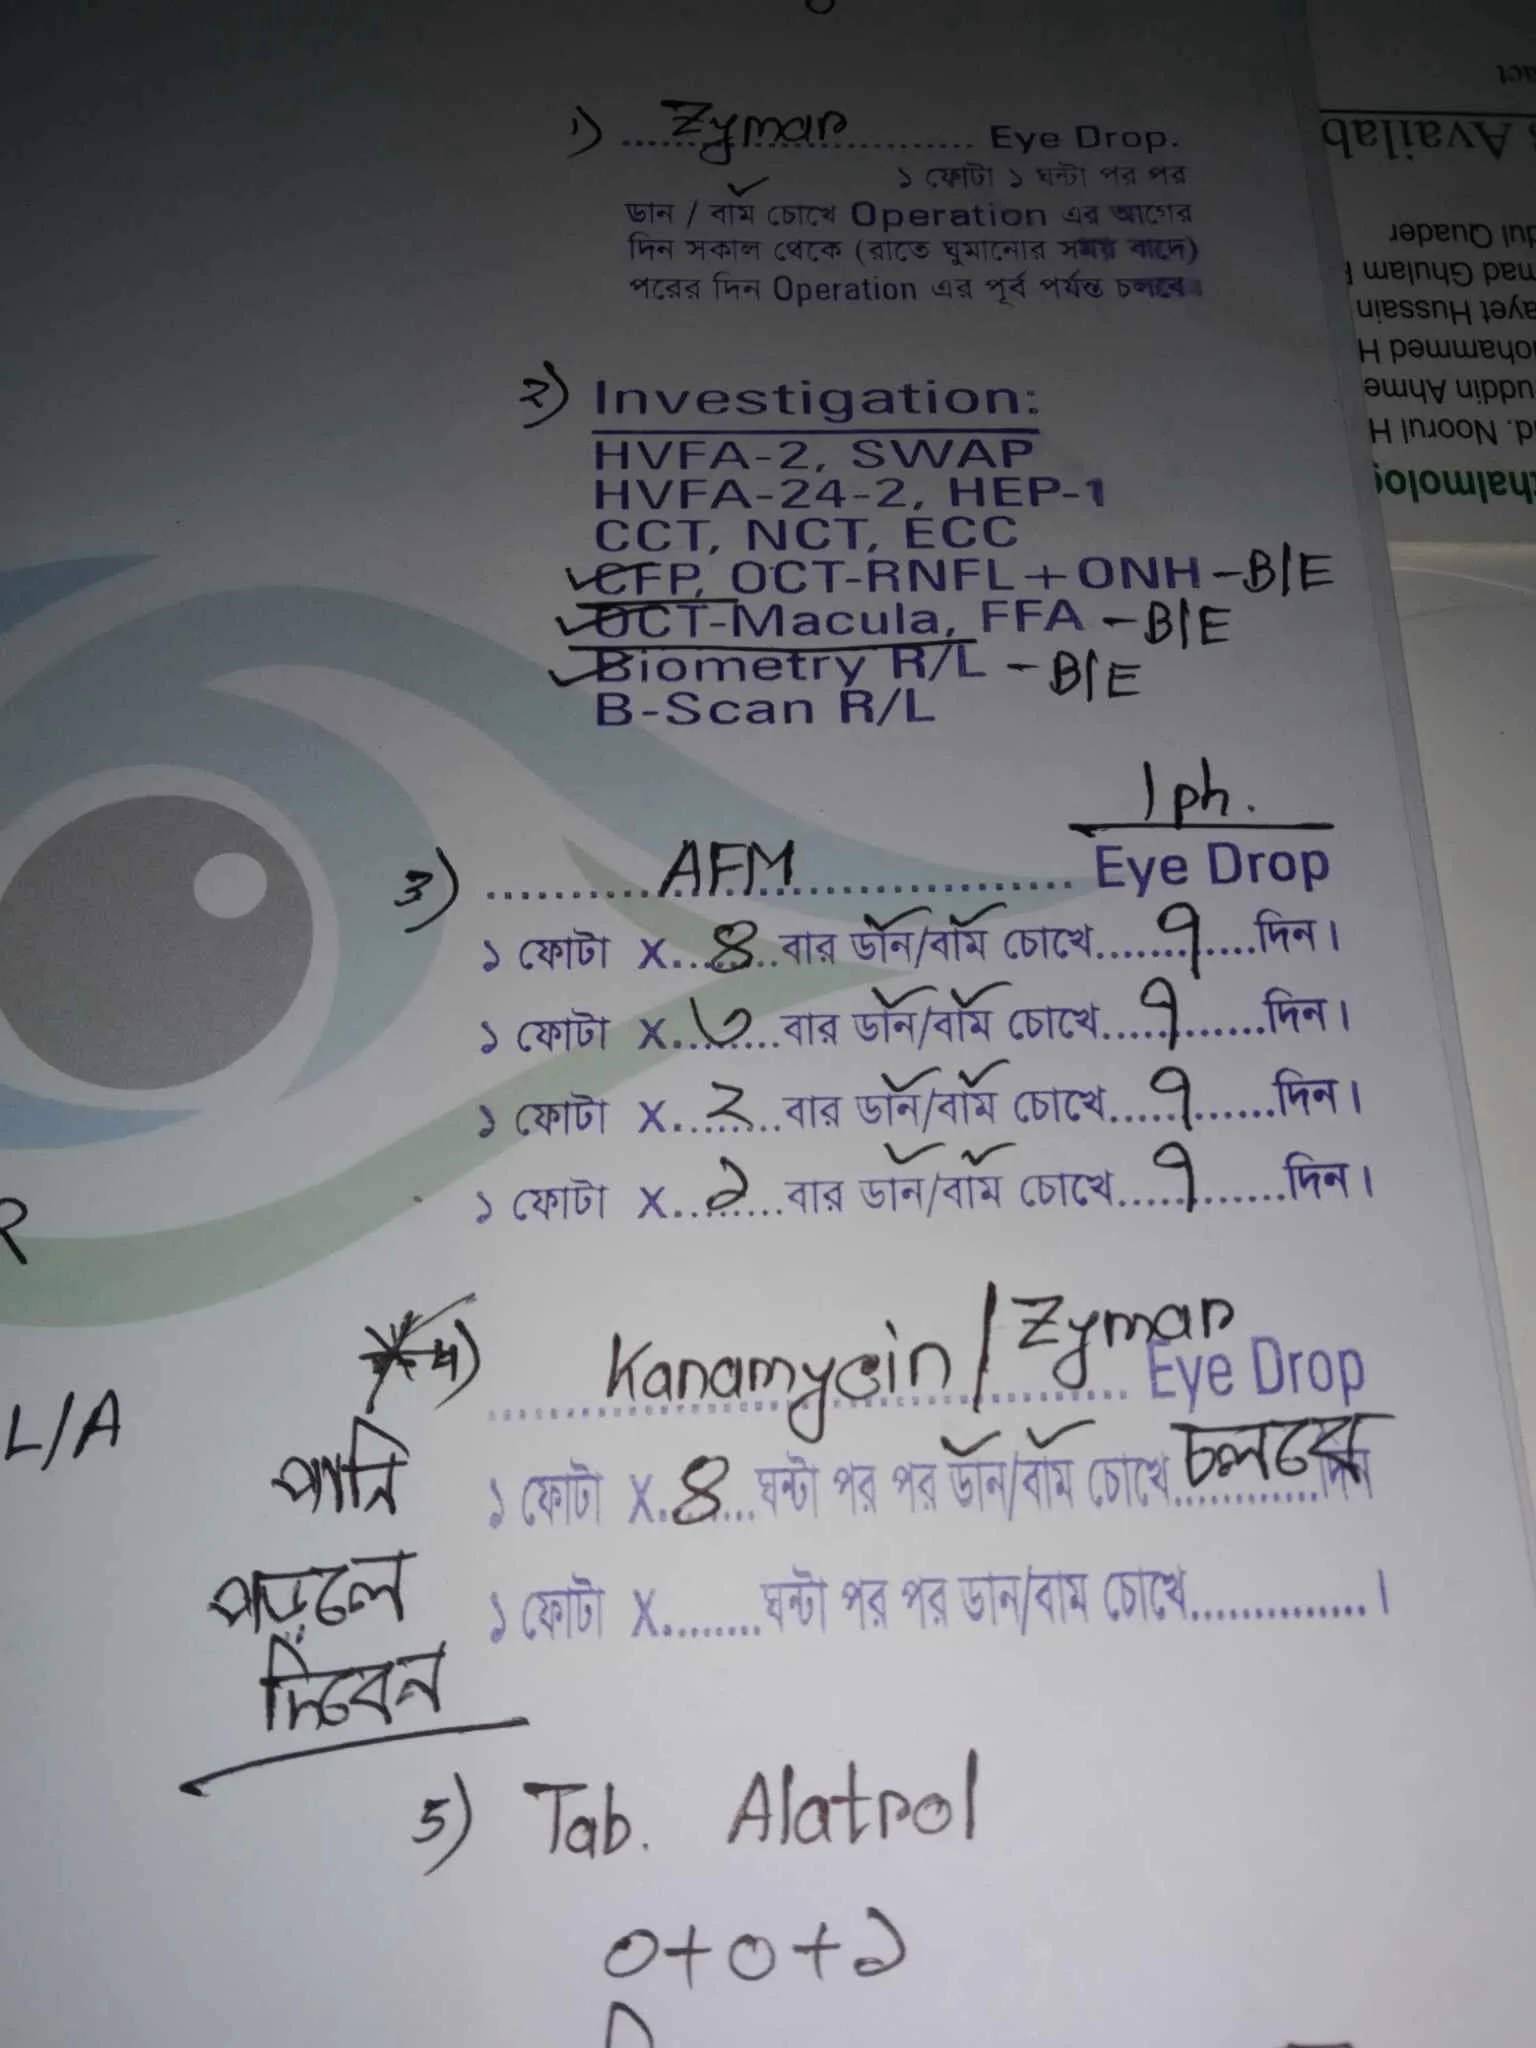 1) Zymar Eye Drop.
১ ফোটা ১ ঘন্টা পর পর
ডান / বাম চোখে Operation এর আগের
দিন সকাল থেকে (রাতে ঘুমানোর সময় বাদে)
পরের দিন Operation এর পূর্ব পর্যন্ত চলবে।
2) Investigation:
HVFA-2, SWAP
HVFA-24-2, HEP-1
CCT, NCT, ECC
CFP, OCT-RNFL+ONH -B/E
OCT-Macula, FFA -B/E
Biometry R/L -B/E
B-Scan R/L
1 ph.
3) AFM Eye Drop
১ ফোটা X...৪...বার ডান/বাম চোখে...৭...দিন।
১ ফোটা X...৩...বার ডান/বাম চোখে...৭...দিন।
১ ফোটা X...২...বার ডান/বাম চোখে...৭...দিন।
১ ফোটা X...১...বার ডান/বাম চোখে...৭...দিন।
4) Kanamycin / Zymar Eye Drop
১ ফোটা X...৪...ঘন্টা পর পর ডান/বাম চোখে চলবে দিন
১ ফোটা X........ঘন্টা পর পর ডান/বাম চোখে..............।
পানি
পড়লে
দিবেন
L/A
5) Tab. Alatrol
০+০+১
Availab
dul Quader
mad Ghulam
ayet Hussain
ohammed H
uddin Ahme
d. Noorul H
halmolo